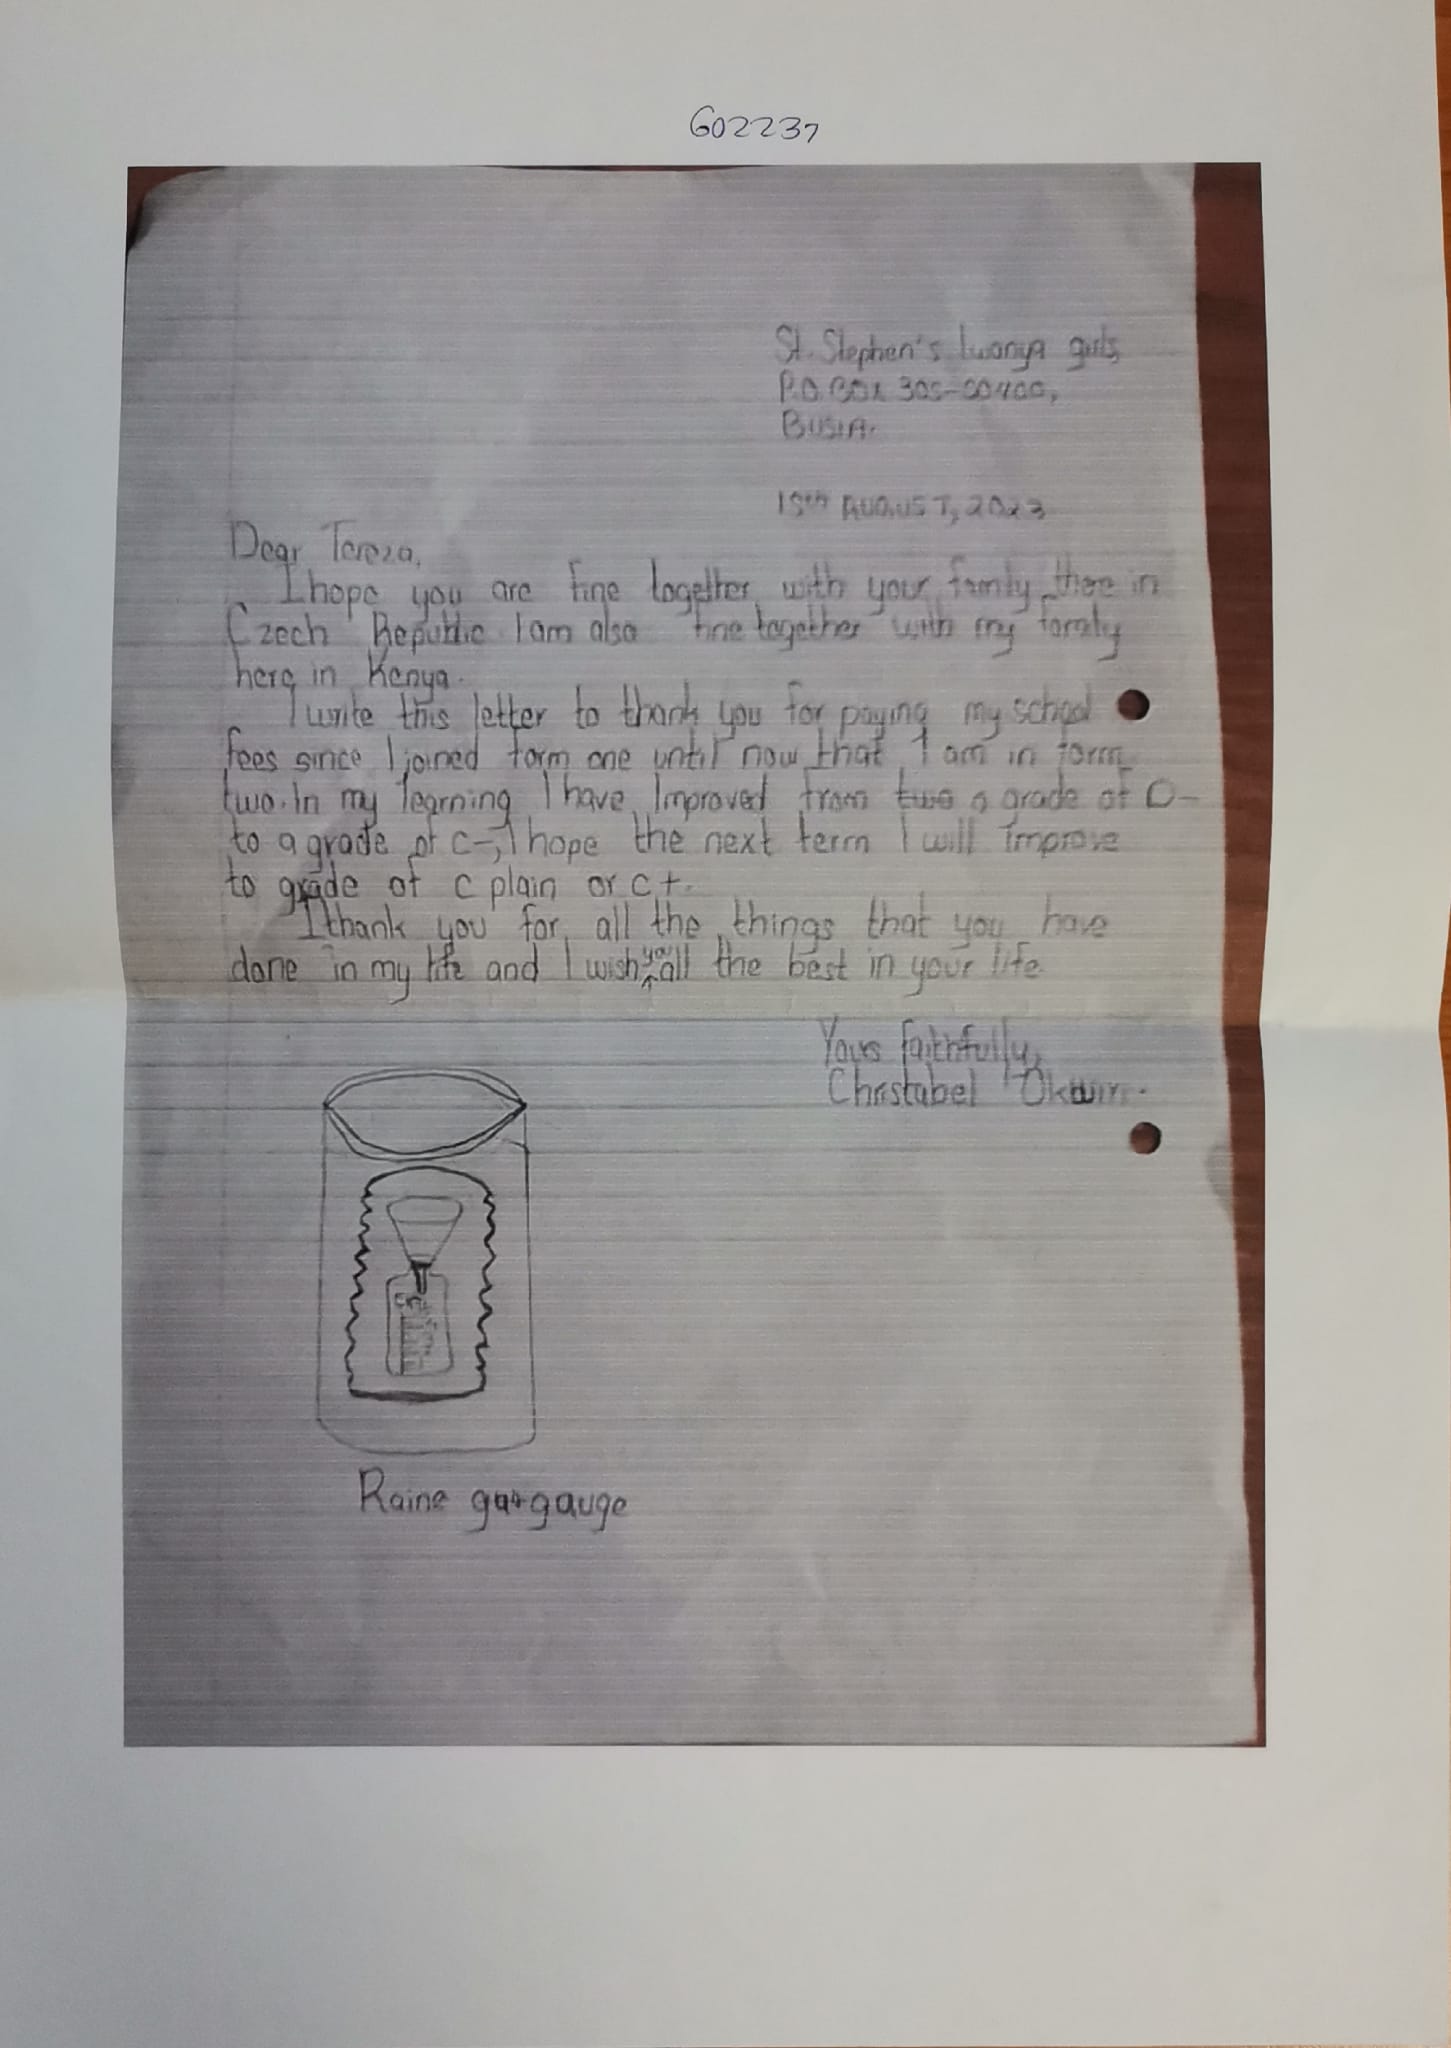 602237
St. Stephen's Lwanya girls,
P.O. BOX 305-50400,
BUSIA.
15th AUGUST, 2023
Dear Tereza,
I hope you are fine together with your family there in
Czech Republic I am also fine together with my family
here in Kenya.
I write this letter to thank you for paying my school
fees since I joined form one until now that I am in form
two. In my learning I have Improved from two a grade of D-
to a grade of C-, I hope the next term I will improve
to grade of C plain or C+.
I thank you for all the things that you have
done in my life and I wish you all the best in your life
Yours faithfully,
Christabel
Raine gauge